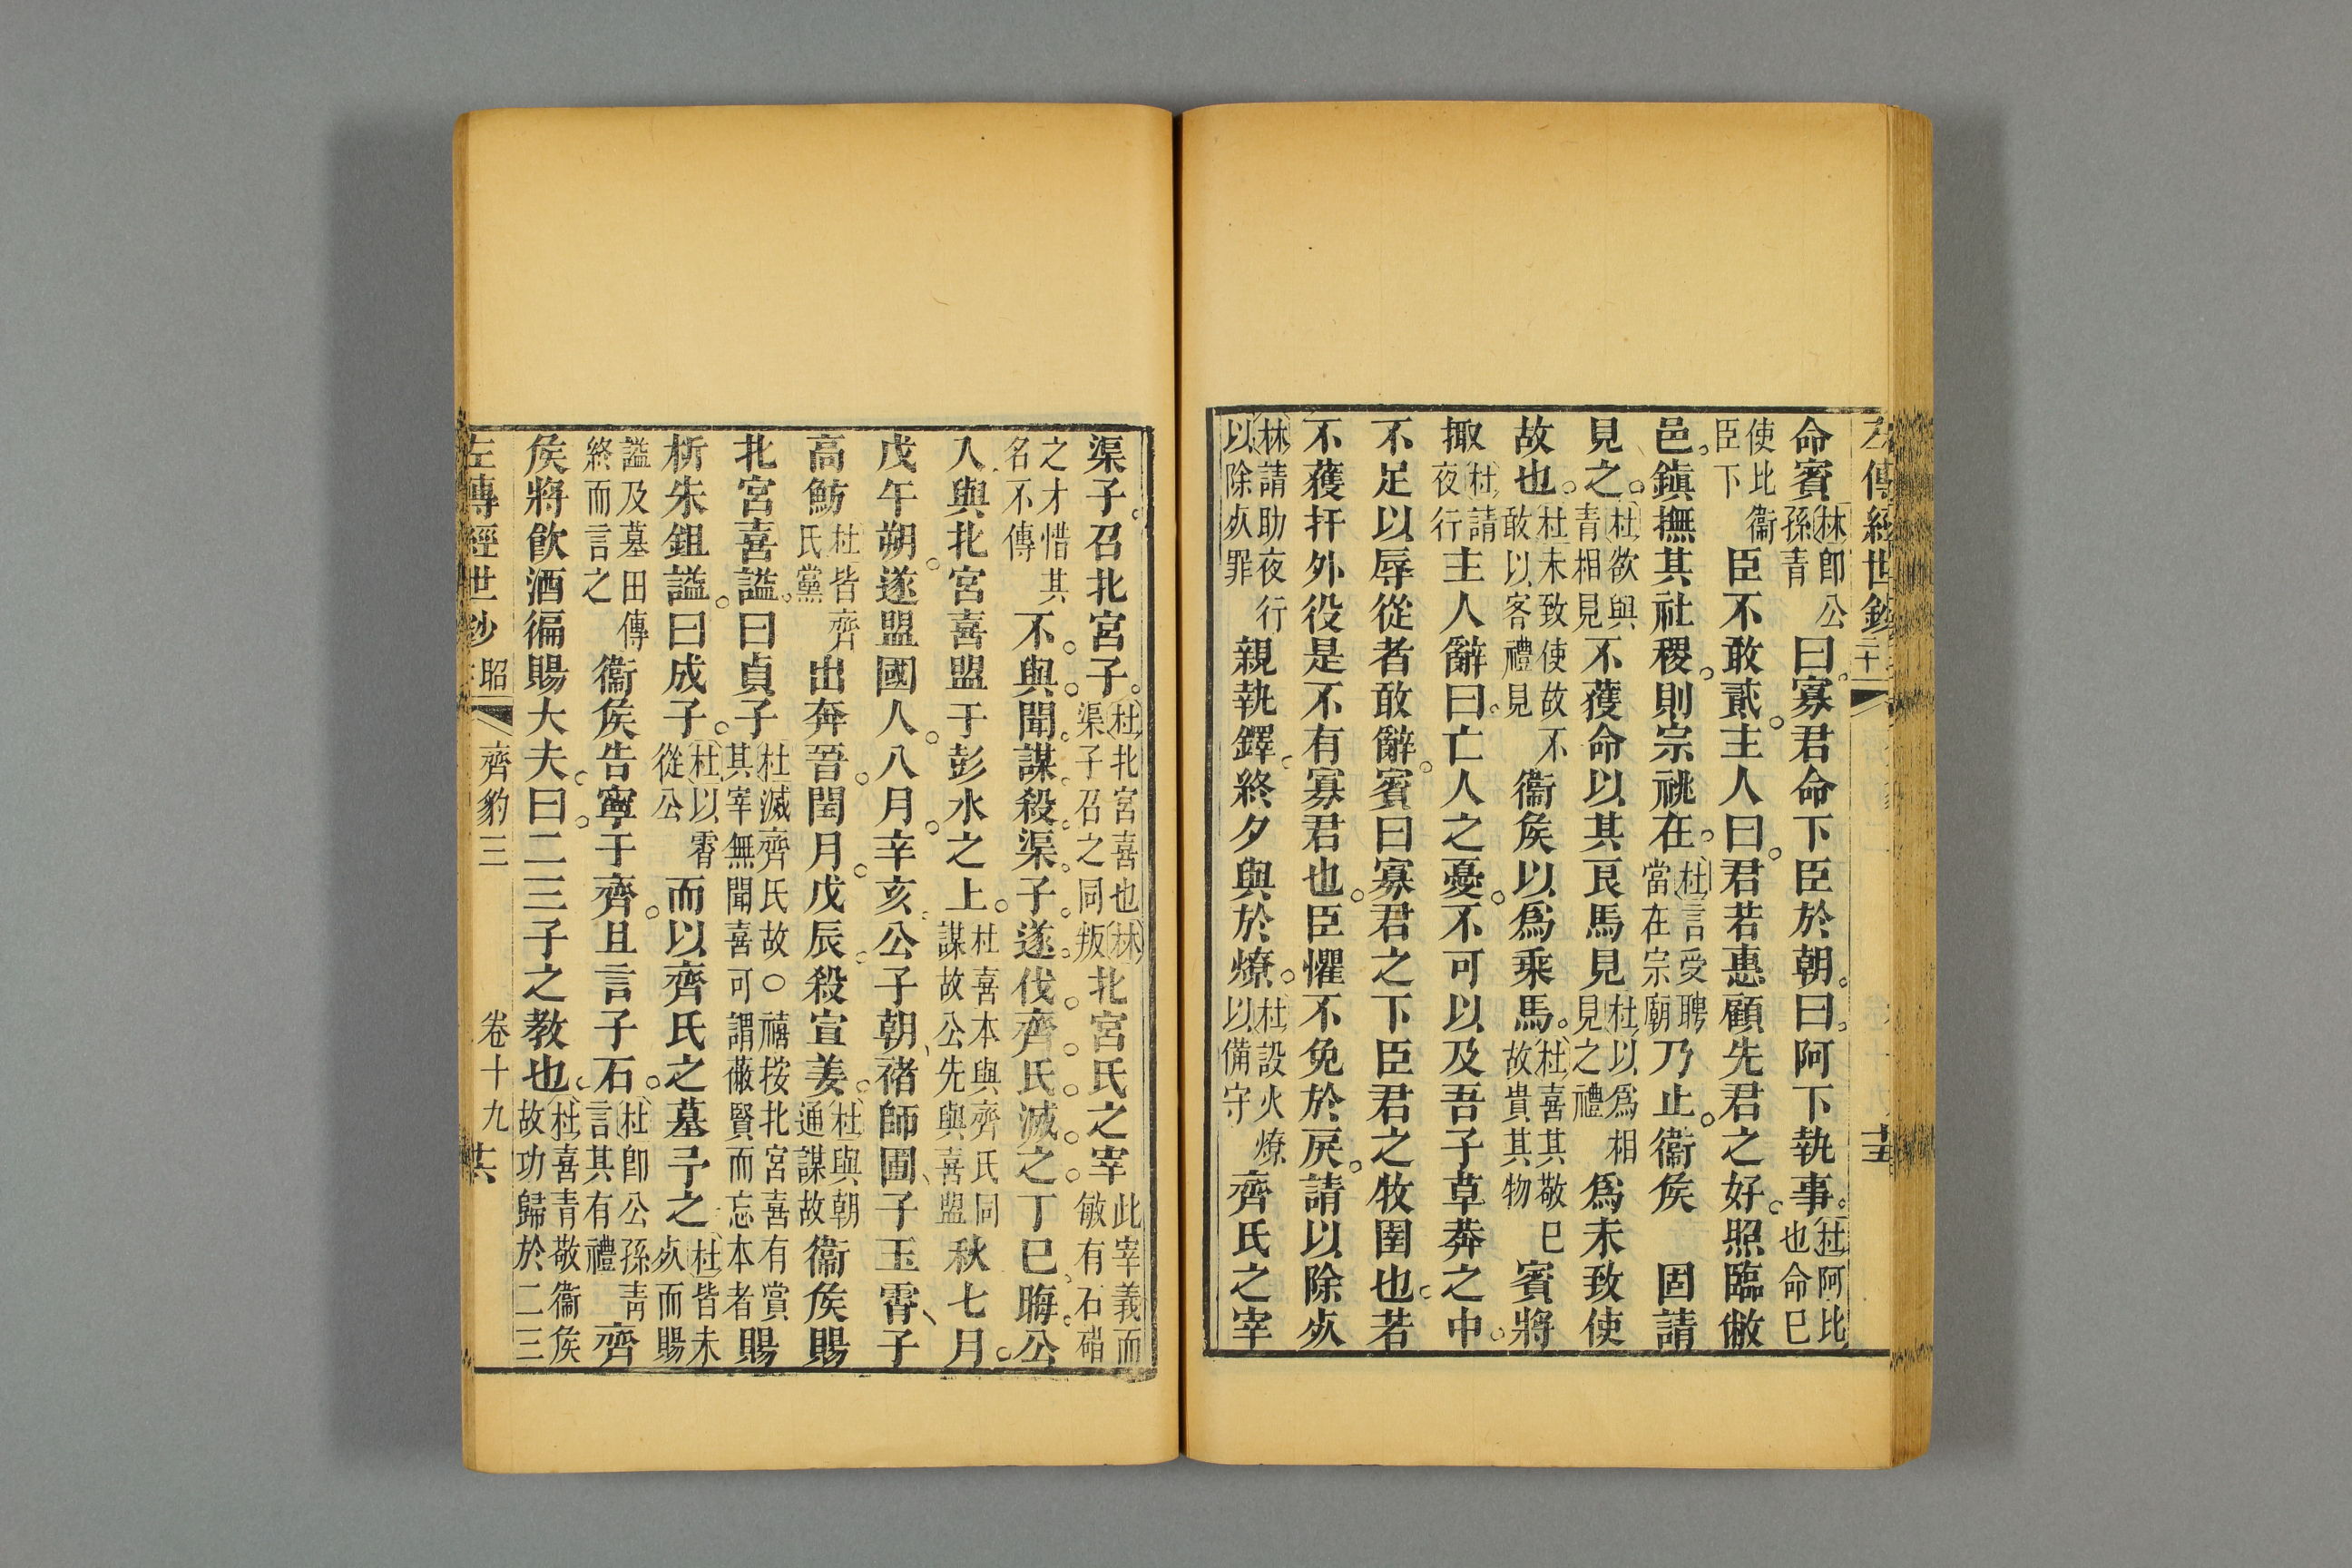 左傳經世鈔
命賓林卽公孫青曰寡君命下臣於朝曰阿下執事杜阿比也命巳
使比衞臣下臣不敢貳主人曰君若惠顧先君之好照臨敝
邑鎭撫其社稷則宗祧在杜言受聘當在宗廟乃止衞侯固請
見之杜欲與青相見不獲命以其良馬見杜以爲相見之禮爲未致使
故也杜未致使故不敢以客禮見衞侯以爲乘馬杜喜其敬巳故貴其物賓將
掫杜請夜行主人辭曰亡人之憂不可以及吾子草莽之中
不足以辱從者敢辭賓曰寡君之下臣君之牧圉也若
不獲扞外役是不有寡君也臣懼不免於戾請以除死
林請助夜行以除死罪親執鐸終夕與於燎杜設火燎以備守齊氏之宰
渠子召北宮子杜北宮喜也林渠子召之同叛北宮氏之宰此宰義而敏有石碏
之才惜其名不傳不與聞謀殺渠子遂伐齊氏滅之丁巳晦公
入與北宮喜盟于彭水之上杜喜本與齊氏同謀故公先與喜盟秋七月
戊午朔遂盟國人八月辛亥公子朝褚師圃子玉霄子
高魴杜皆齊氏黨出奔晉閏月戊辰殺宣姜杜與朝通謀故衞侯賜
北宮喜諡曰貞子杜滅齊氏故○禧按北宮喜有賞其宰無聞喜可謂蔽賢而忘本者賜
析朱鉏諡曰成子杜以霄從公而以齊氏之墓予之杜皆未死而賜
諡及墓田傳終而言之衞侯告寧于齊且言子石杜卽公孫靑言其有禮齊
侯將飮酒徧賜大夫曰二三子之教也杜喜青敬衞侯故功歸於二三
左傳經世鈔 昭 齊豹三 卷十九